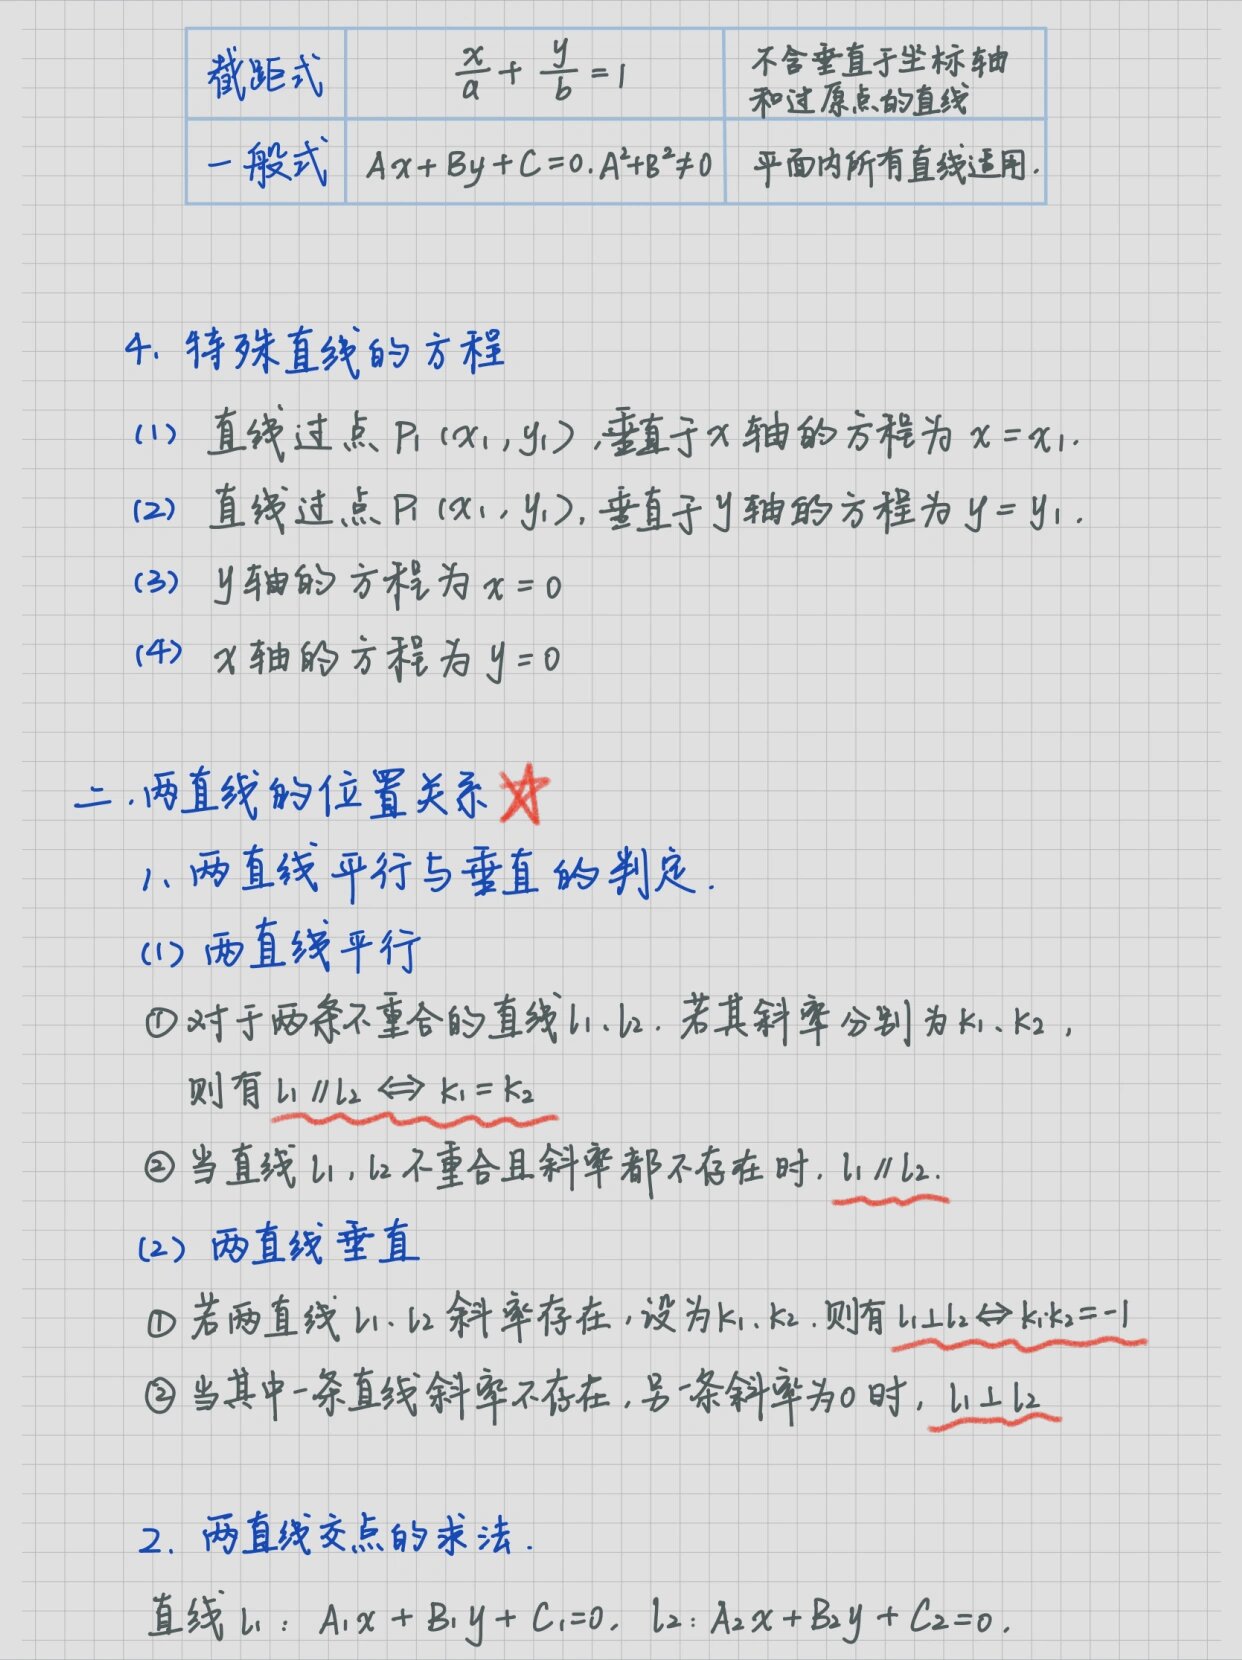 截距式 x/a + y/b = 1 不含垂直于坐标轴
和过原点的直线
一般式 Ax + By + C = 0. A²+B²≠0 平面内所有直线适用.
4. 特殊直线的方程
(1) 直线过点 P₁ (x₁, y₁), 垂直于 x 轴的方程为 x = x₁.
(2) 直线过点 P₁ (x₁, y₁), 垂直于 y 轴的方程为 y = y₁.
(3) y 轴的方程为 x = 0
(4) x 轴的方程为 y = 0
二. 两直线的位置关系
1、两直线平行与垂直的判定.
(1) 两直线平行
① 对于两条不重合的直线 l₁、l₂. 若其斜率分别为 k₁、k₂,
则有 l₁ // l₂ ⇔ k₁ = k₂
② 当直线 l₁, l₂ 不重合且斜率都不存在时. l₁ // l₂.
(2) 两直线垂直
① 若两直线 l₁、l₂ 斜率存在, 设为 k₁、k₂. 则有 l₁⊥l₂ ⇔ k₁·k₂ = -1
② 当其中一条直线斜率不存在, 另一条斜率为 0 时, l₁⊥l₂
2. 两直线交点的求法.
直线 l₁: A₁x + B₁y + C₁=0. l₂: A₂x + B₂y + C₂=0.